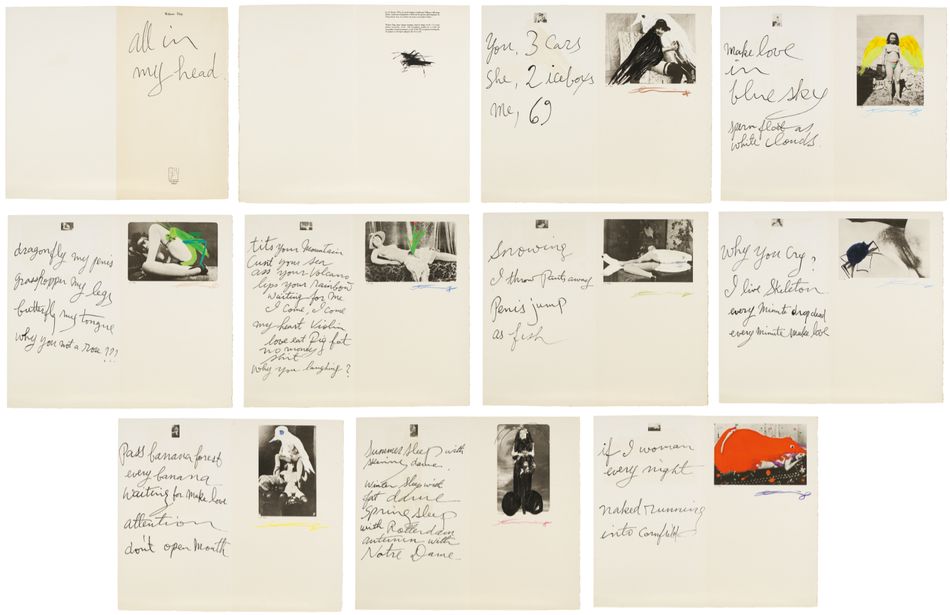 Walasse Ting
all in
my head.
You, 3 cars
She, 2 iceboxs
me, 69
Make love
in
blue sky
sperm float as
white clouds.
dragonfly my penis
grasshopper my legs
butterfly my tongue
why you not a rose ???
tits your Mountain
Cunt your sea
ass your volcano
lips your rainbow
waiting for me
I come, I come
my heart violin
love eat pig fat
no money
shit
why you laughing?
Snowing
I throw Pants away
Penis jump
as fish
Why You Cry?
I live Skeleton
every Minute drop dead
every minute make love
Pass banana forest
every banana
waiting for make love
attention
don't open Mouth
Summer sleep with
dame.
winter sleep with
fat dame
Spring sleep
with Rotterdam
autumn with
Notre Dame
if I woman
every night
naked running
into cornfield